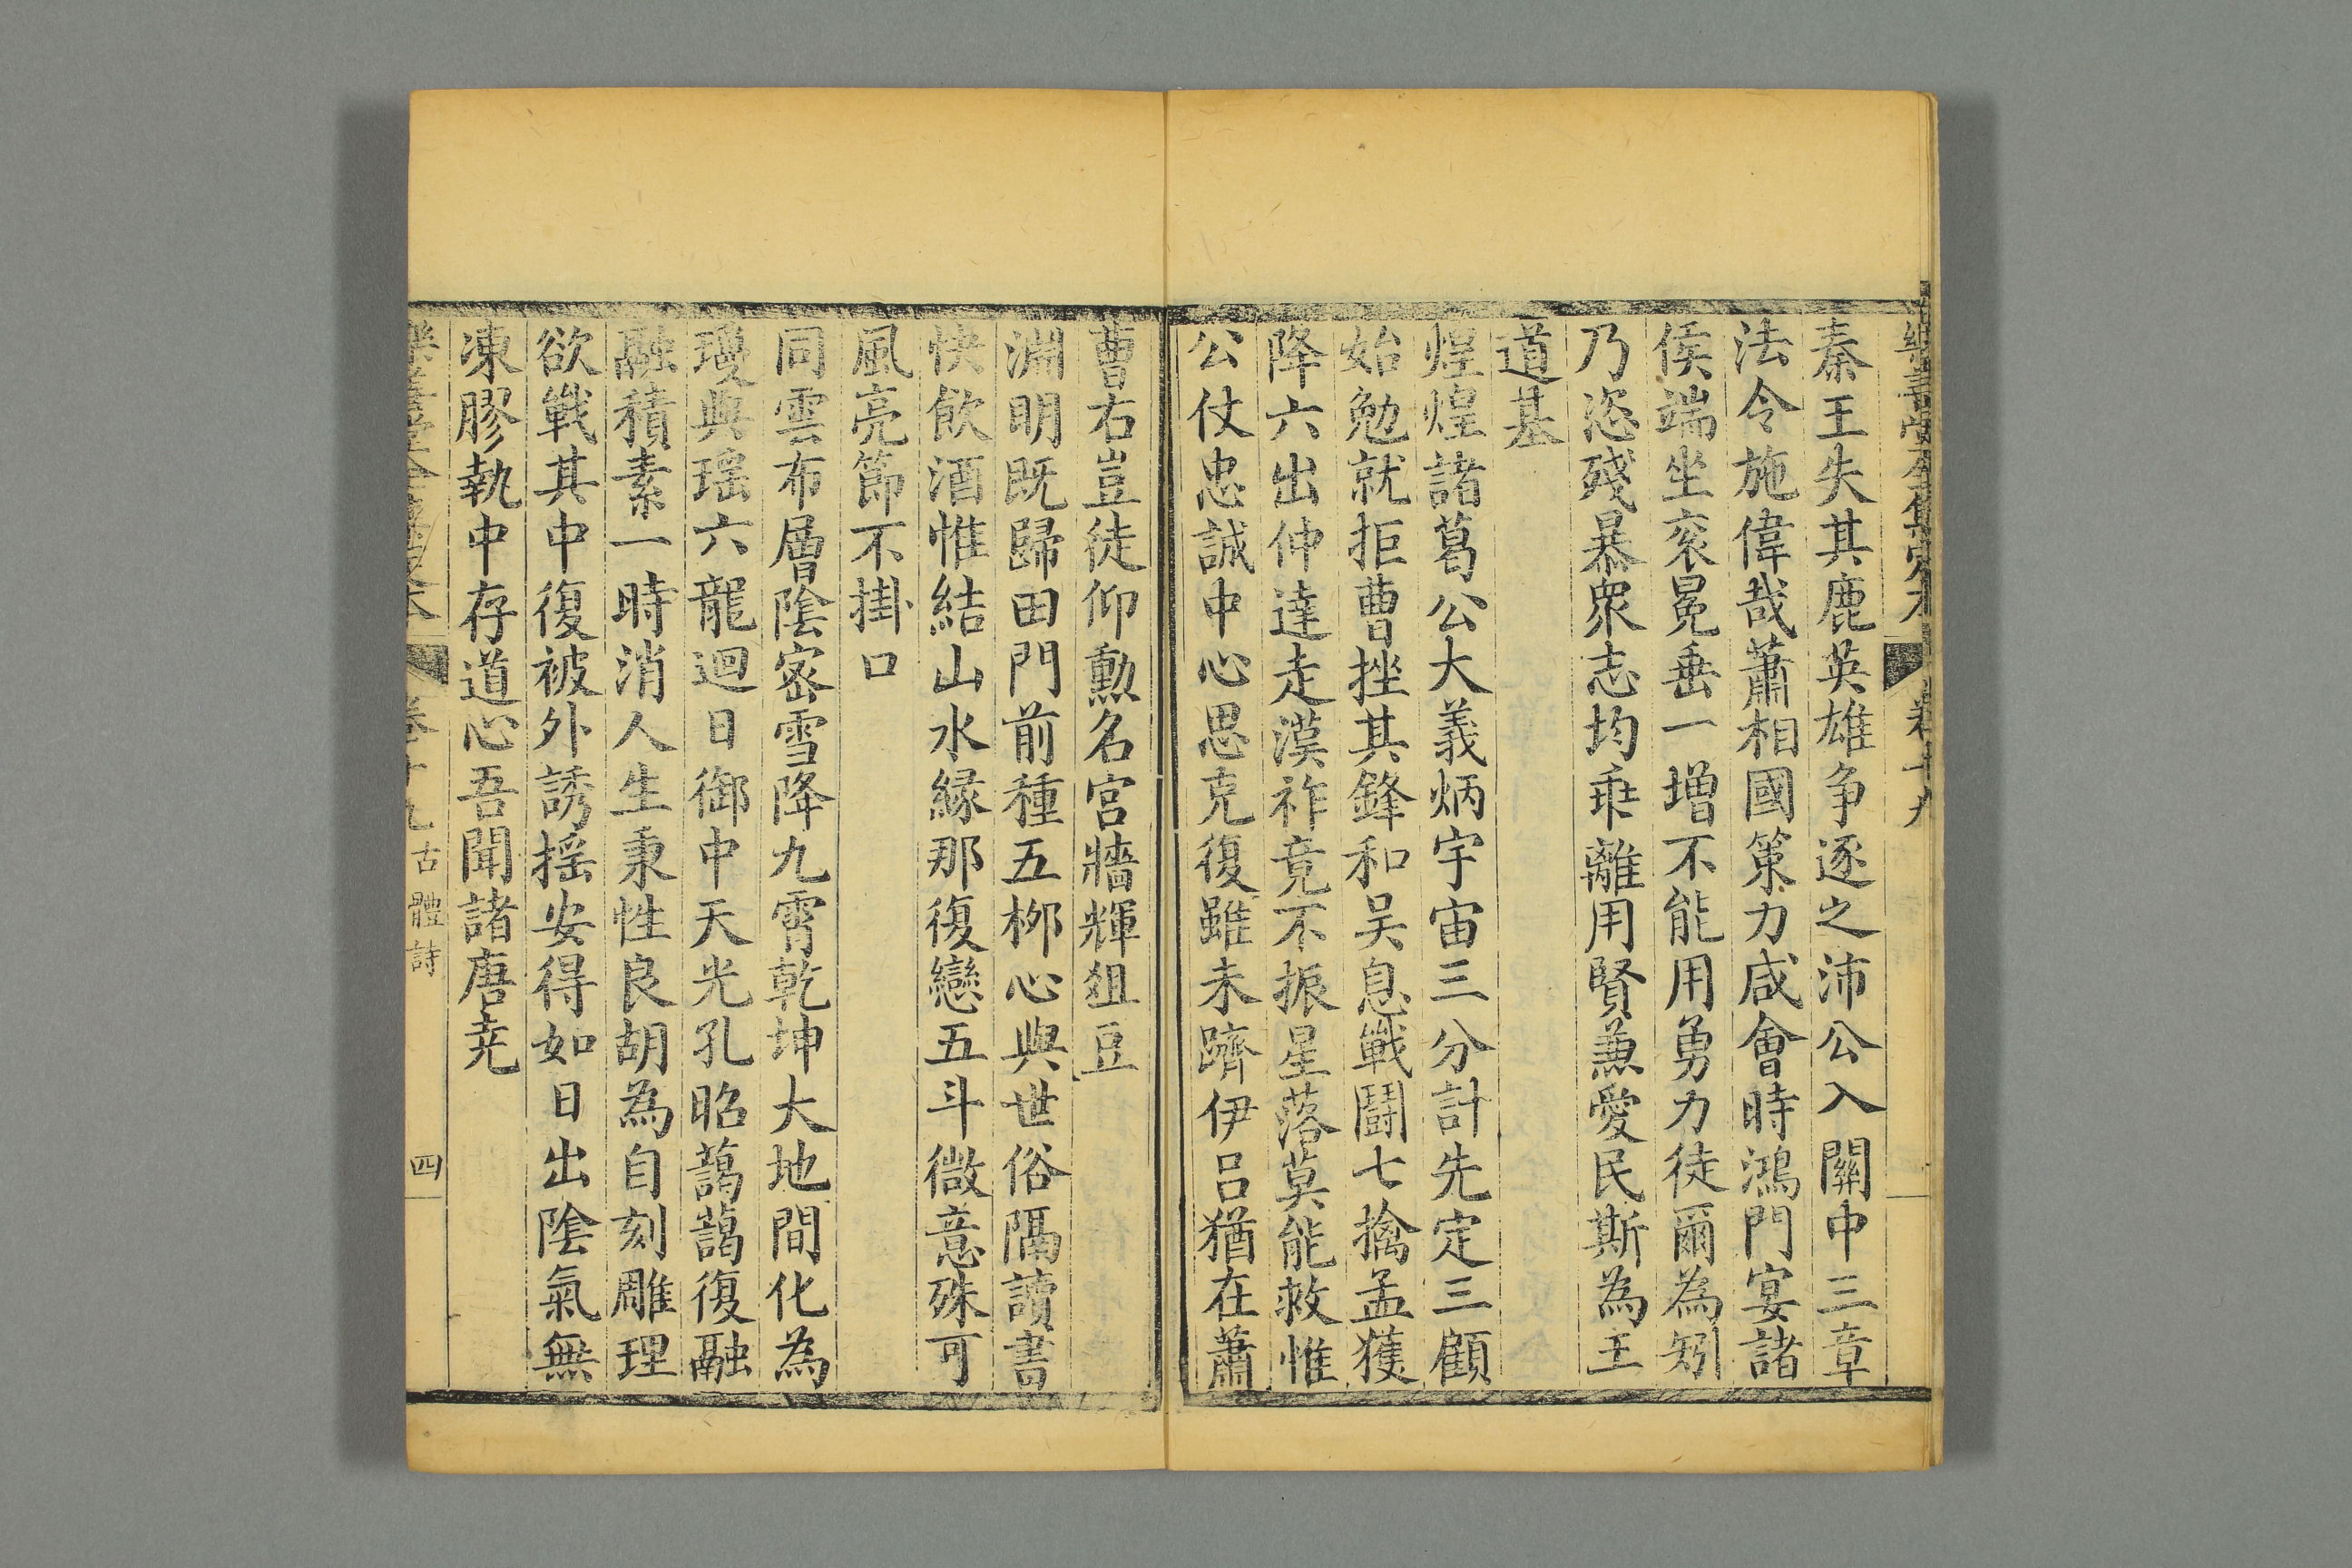 秦王失其鹿英雄争逐之沛公入關中三章
法令施偉哉蕭相國策力咸會時鴻門宴諸
侯端坐衮冕垂一增不能用勇力徒爾為矧
乃恣殘暴衆志均乖離用賢兼愛民斯為王
道基
煌煌諸葛公大義炳宇宙三分計先定三顧
始勉就拒曹挫其鋒和吴息戰鬪七擒孟獲
降六出仲達走漢祚竟不振星落莫能救惟
公仗忠誠中心思克復雖未躋伊吕猶在蕭
曹右豈徒仰勲名宫牆輝俎豆
淵明既歸田門前種五栁心與世俗隔讀書
快飲酒惟結山水縁那復戀五斗微意殊可
風亮節不掛口
同雲布層陰密雪降九霄乾坤大地間化為
瓊與瑶六龍迴日御中天光孔昭藹藹復融
融積素一時消人生秉性良胡為自刻雕理
欲戰其中復被外誘摇安得如日出陰氣無
凍膠執中存道心吾聞諸唐尭
卷十九 古體詩 四